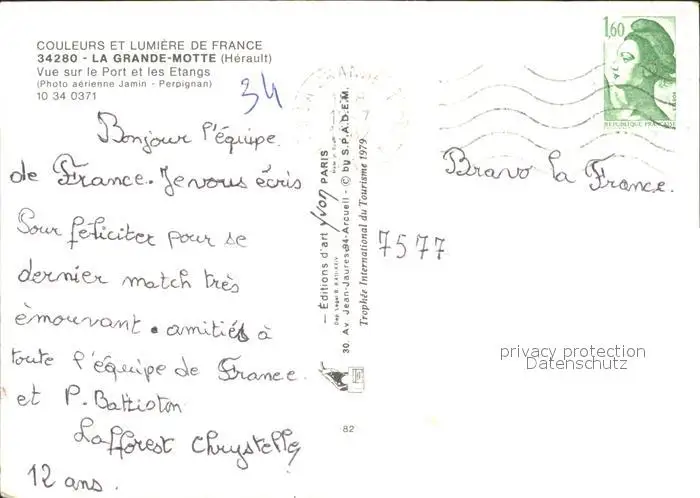 COULEURS ET LUMIÈRE DE FRANCE
34280 - LA GRANDE-MOTTE (Hérault)
Vue sur le Port et les Etangs
(Photo aérienne Jamin - Perpignan)
10 34 0371
34
Bonjour l'équipe
de France. Je vous écris
Pour féliciter pour se
dernier match très
èmouvant. amitiés à
toute l'équipe de France.
et P. Battiston
Lafforest Chrystelle
12 ans.
— Éditions d'art yvon PARIS
30. Av. Jean-Jaures 94-Arcueil - © by S.P.A.D.E.M.
Trophée International du Tourisme 1979
82
1,60
REPUBLIQUE FRANÇAISE
Bravo la France.
7577
privacy protection
Datenschutz